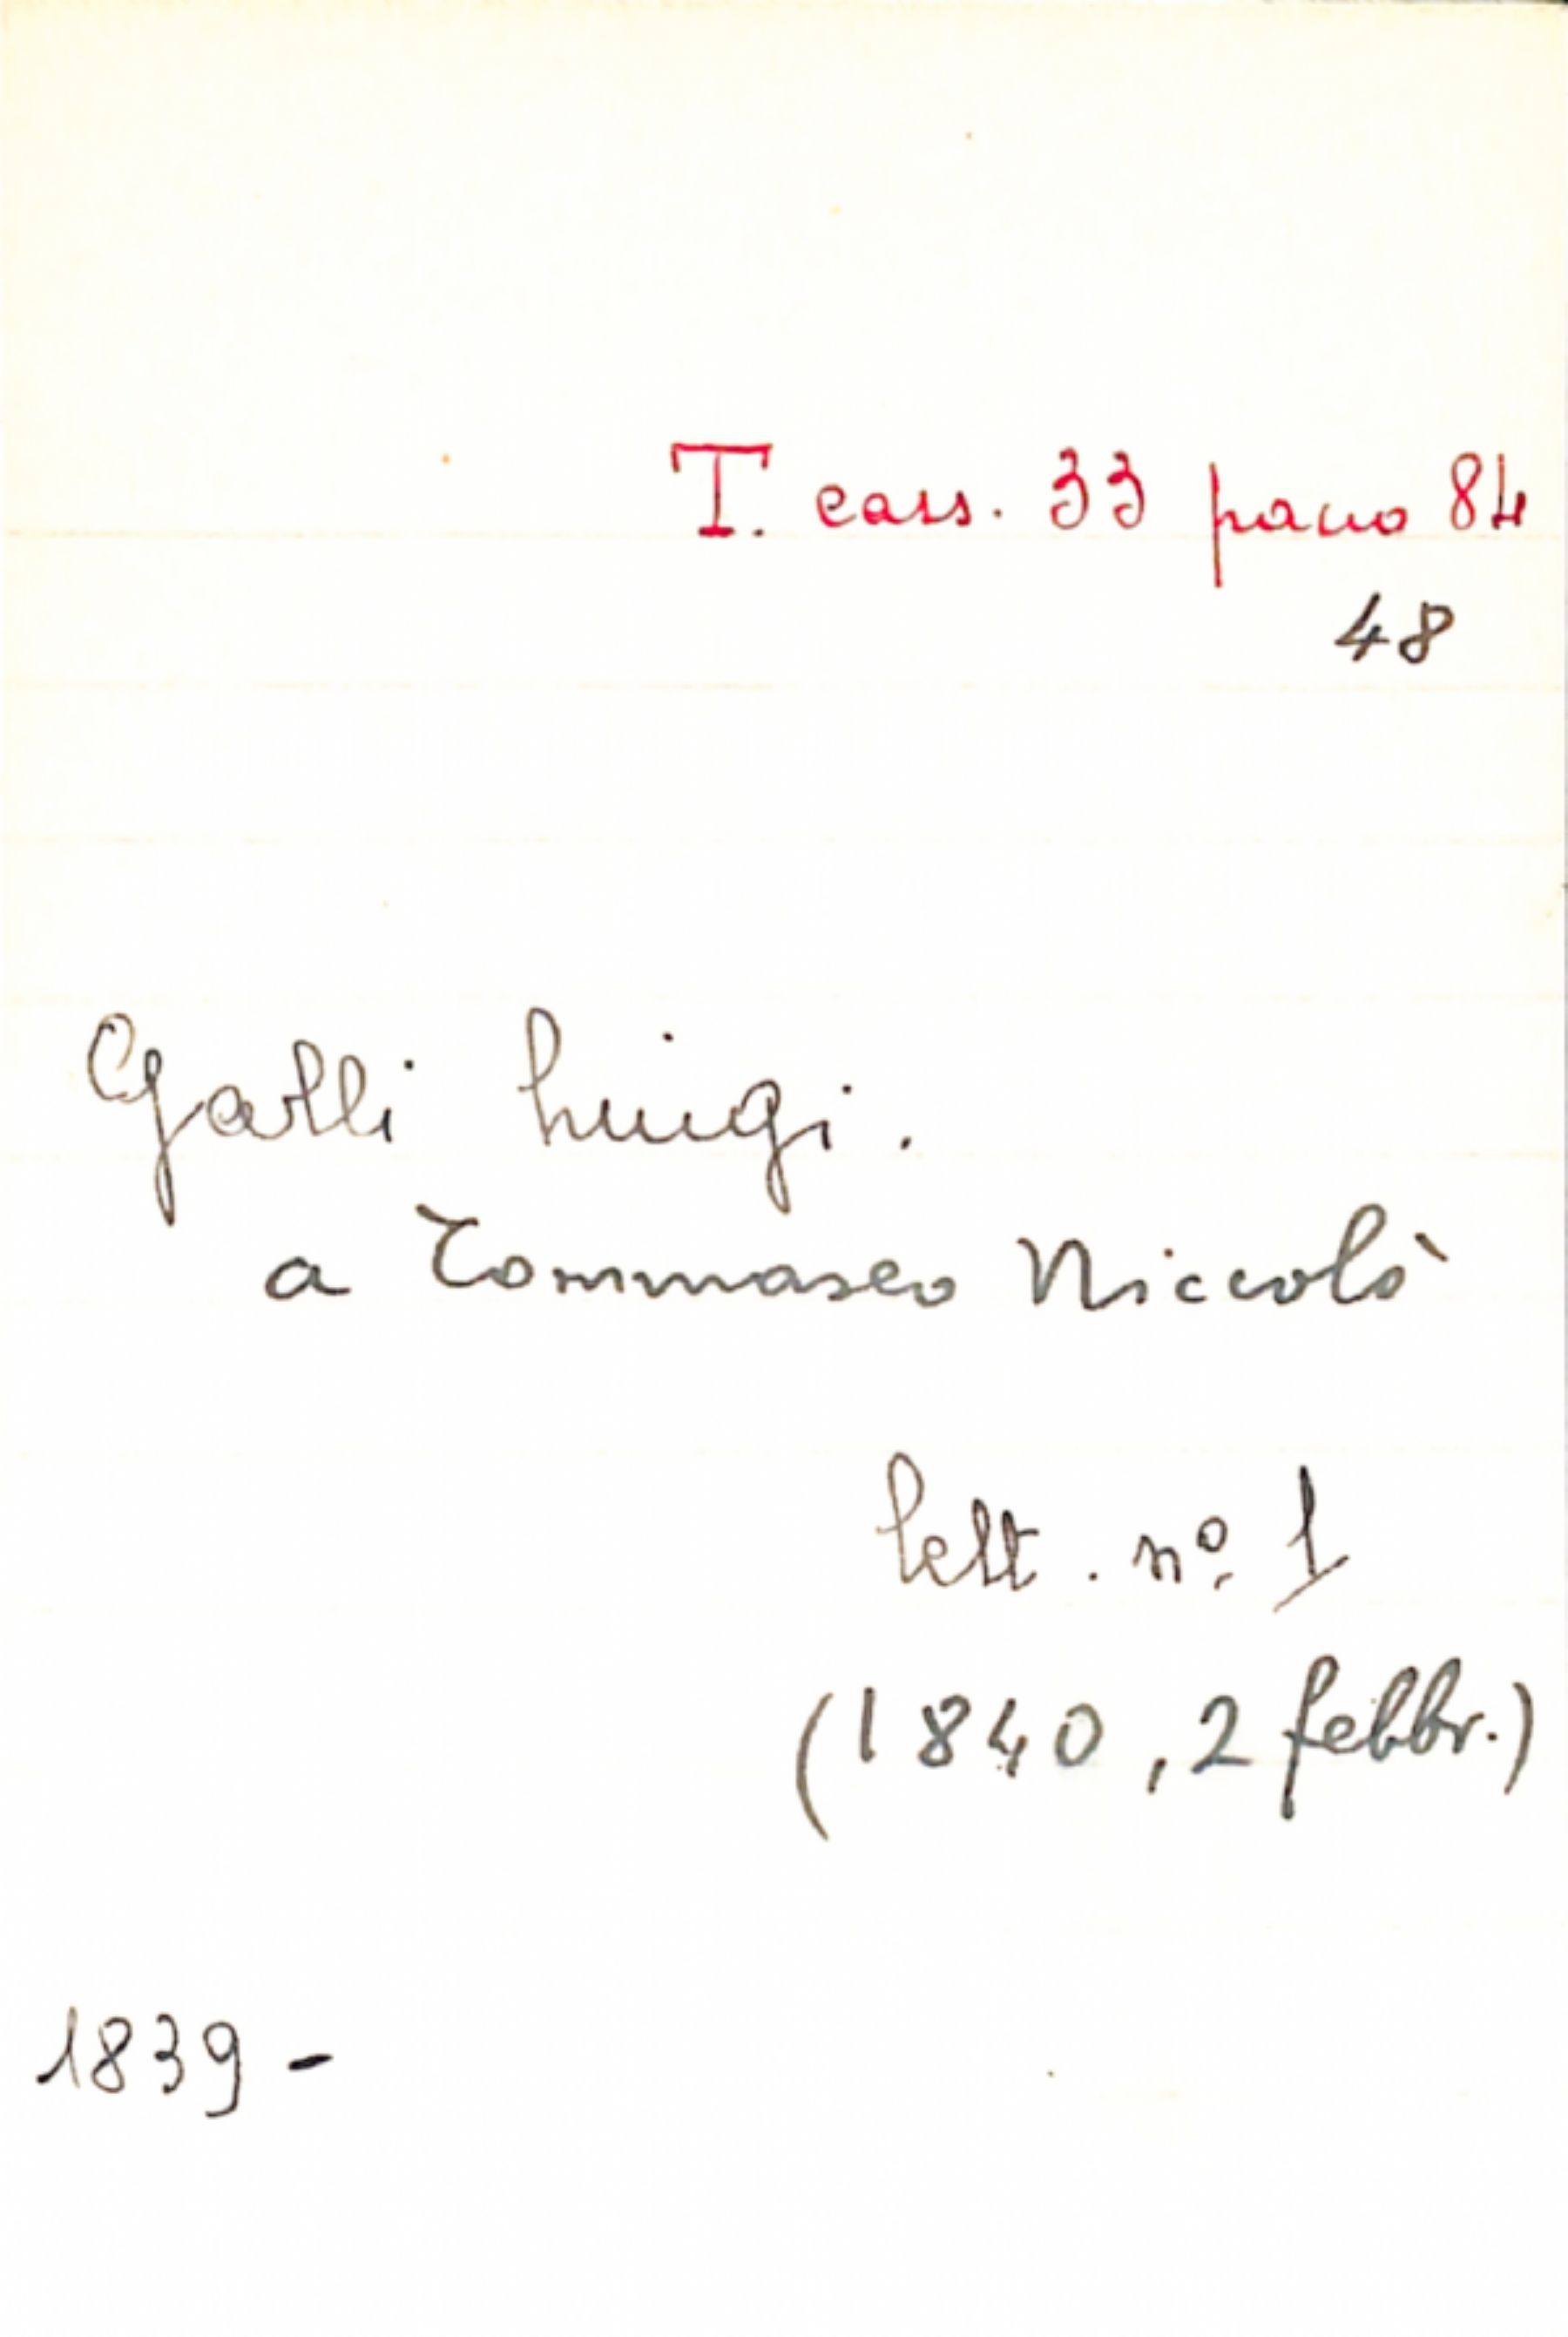 T. cass. 33 pacco 84
48
Galli Luigi.
a Tommaseo Niccolò
lett. nº 1
(1840, 2 febbr.)
1839 -